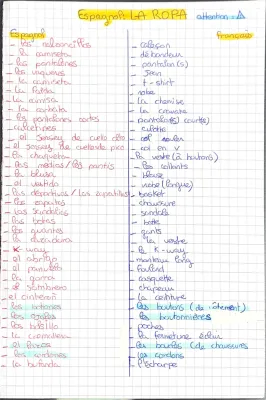 Espagnol: LA ROPA attention: ⚠
Espagnol français
- los calzoncillos - caleçon
- la camiseta - débardeur
- los pantalones - pantalon(s)
- los vaqueros - Jean
- la camiseta - t-shirt
- la falda - robe
- la camisa - la chemise
- la corbata - la cravate
- los pantalones cortos - pantalon(s) court(s)
- calcetines - culotte
- el jersey de cuello alto - col roulé
- el jersey de cuello pico - col en v
- la chaqueta - la veste (à boutons)
- las medias / los pantis - les collants
- la blusa - blouse
- el vestido - robe (longue)
- las deportivas / las zapatillas - basket
- los zapatos - chaussure
- las sandalias - sandale
- las botas - botte
- los guantes - gants
- la cazadora - la veste
- K-way - le K-way
- el abrigo - manteau long
- el pañuelo - foulard
- la gorra - casquette
- el sombrero - chapeau
- el cinturón - la ceinture
- los botones - les boutons (de vêtement)
- los ojales - les boutonnières
- los bolsillos - poches
- la cremallera - la fermeture éclair
- les boucles (de chaussures
- los cordones - les cordons
- la bufanda - l'écharpe